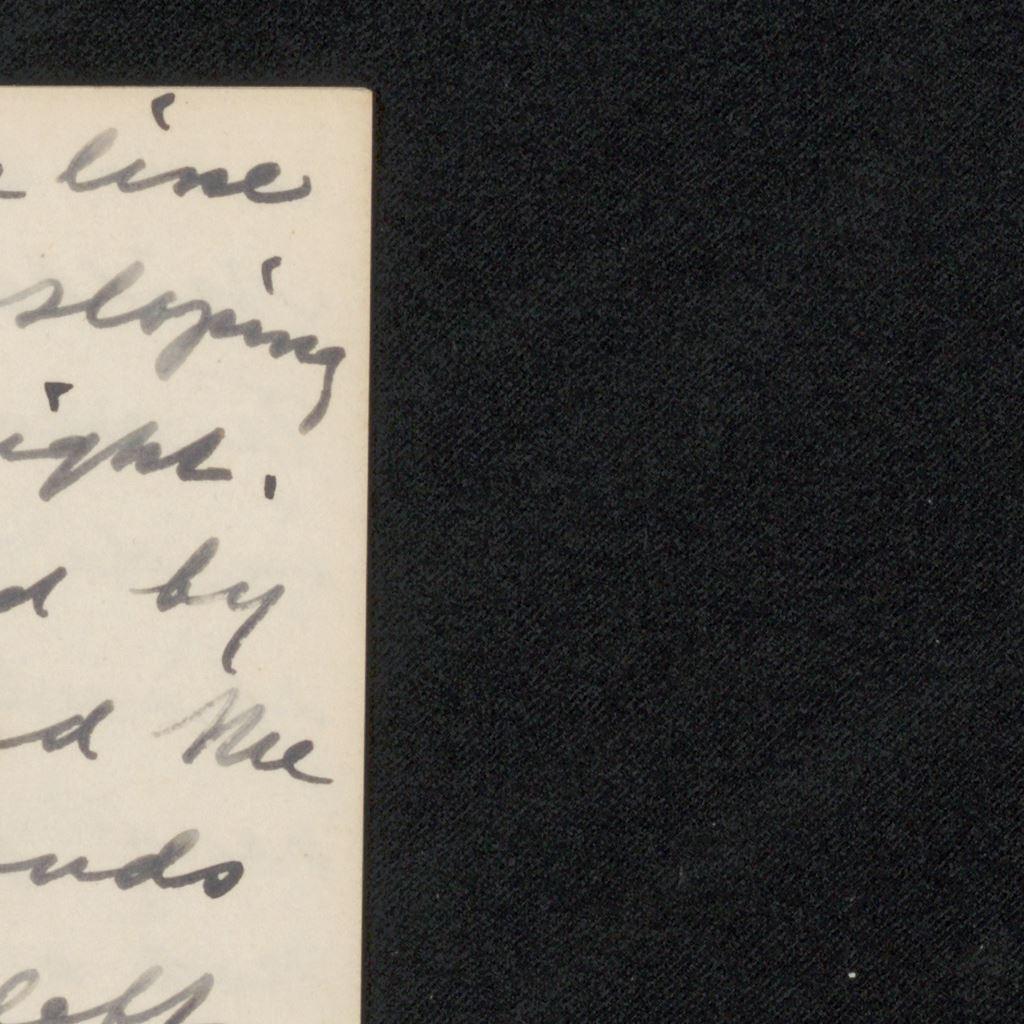 line
sloping
ight.
d by
d the
nds
left